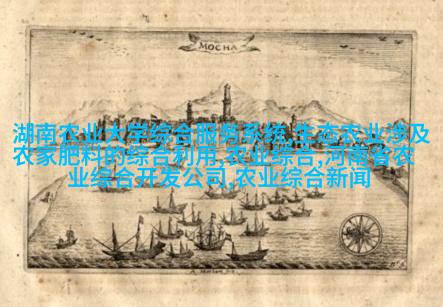 MOCHA
湖南农业大学综合服务系统,生态农业涉及
农家肥料的综合利用,农业综合,河南省农
业综合开发公司,农业综合新闻